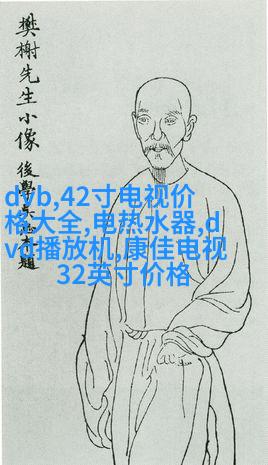 樊榭先生小像
後學 題
dyb,42寸电视价
格大全,电热水器,d
vd播放机,康佳电视
32英寸价格